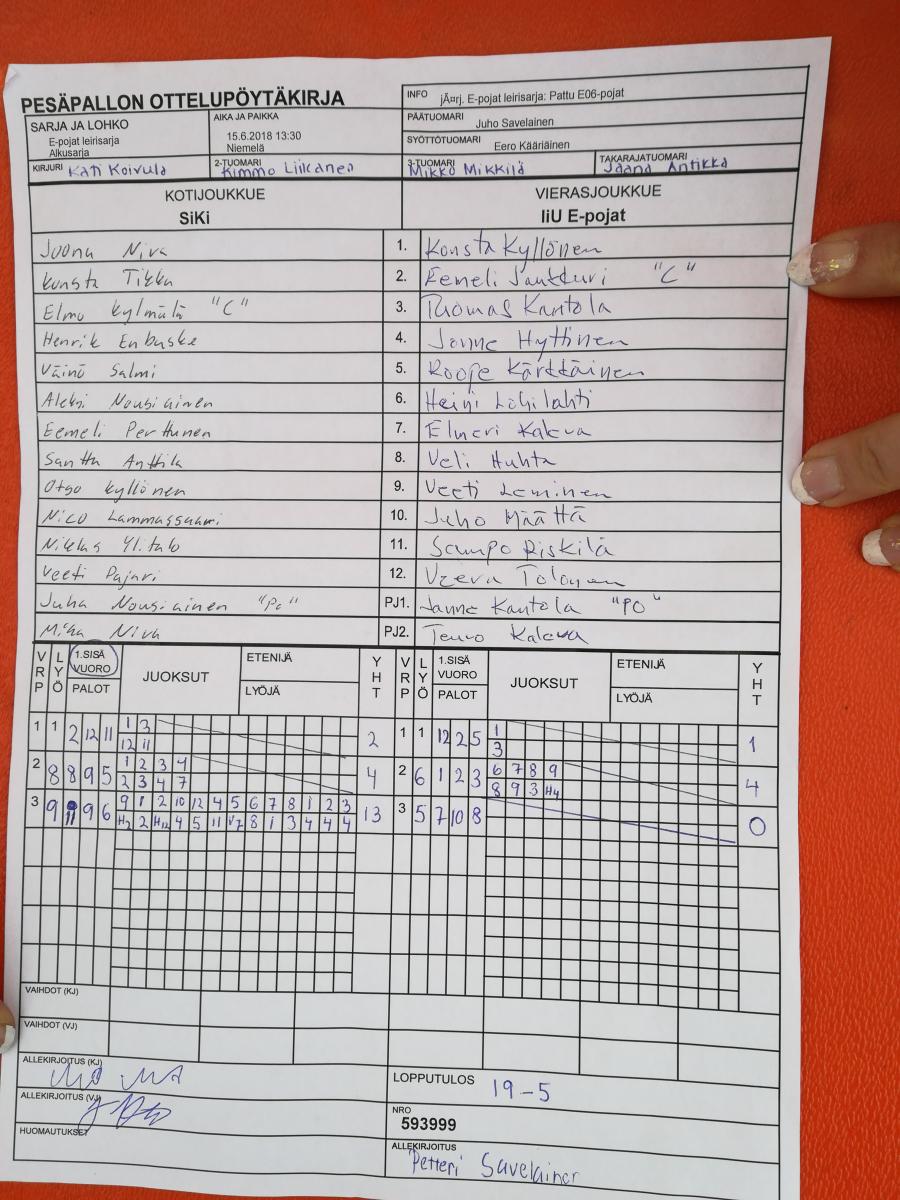 PESÄPALLON OTTELUPÖYTÄKIRJA
INFO jÃ¤rj. E-pojat leirisarja: Pattu E06-pojat
SARJA JA LOHKO
E-pojat leirisarja
Alkusarja
AIKA JA PAIKKA
15.6.2018 13:30
Niemelä
PÄÄTUOMARI Juho Savelainen
SYÖTTÖTUOMARI Eero Kääriäinen
KIRJURI Kati Koivula
2-TUOMARI Kimmo Liikanen
3-TUOMARI Mikko Mikkilä
TAKARAJATUOMARI Jaana Antikka
KOTIJOUKKUE VIERASJOUKKUE
SiKi IiU E-pojat
Joona Niva 1. Konsta Kyllönen
Konsta Tikka 2. Eemeli Santturi "C"
Elmo Kylmälä "C" 3. Tuomas Kantola
Henrik Enbuske 4. Janne Hyttinen
Väinö Salmi 5. Roope Kärttäinen
Aleksi Nousiainen 6. Heini Lohilahti
Eemeli Perttunen 7. Elmeri Kaleva
Santtu Anttila 8. Veli Huhta
Otso Kyllönen 9. Veeti Leminen
Nico Lammassaari 10. Juho Määttä
Niklas Ylitalo 11. Sampo Riskilä
Veeti Pajari 12. Veeva Tolonen
Juha Nousiainen "Po" PJ1. Janne Kantola "PO"
Mika Niva PJ2. Teuvo Kaleva
VRP LYÖ 1.SISÄ VUORO PALOT JUOKSUT ETENIJÄ LYÖJÄ YHT VRP LYÖ 1.SISÄ VUORO PALOT JUOKSUT ETENIJÄ LYÖJÄ YHT
1 1 2 12 11 1 3 2 1 1 12 2 5 1 1
12 11 3
2 8 8 9 5 1 2 3 4 4 2 6 1 2 3 6 7 8 9 4
2 3 4 7 8 9 3 H4
3 9 11 9 6 9 1 2 10 12 4 5 6 7 8 1 2 3 13 3 5 7 10 8 0
H2 2 H12 4 5 11 V7 8 1 3 4 4 4
VAIHDOT (KJ)
VAIHDOT (VJ)
ALLEKIRJOITUS (KJ)
LOPPUTULOS 19-5
ALLEKIRJOITUS (VJ)
NRO
593999
HUOMAUTUKSET
ALLEKIRJOITUS
Petteri Savelainen